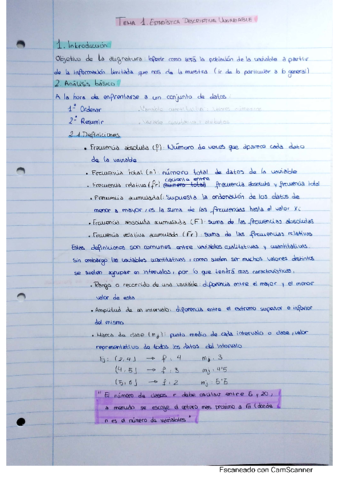 TEMA 1. ESTADÍSTICA DESCRIPTIVA UNIVARIABLE
1. Introducción
Objetivo de la asignatura: inferir como será la población de la variable a partir
de la información limitada que nos da la muestra (ir de lo particular a lo general)
2. Análisis básico
A la hora de enfrentarse a un conjunto de datos:
1º Ordenar
2º Resumir
2.1 Definiciones
• Frecuencia absoluta (f): Número de veces que aparece cada dato
de la variable
• Frecuencia total (n): número total de datos de la variable
• Frecuencia relativa (fr): cociente entre frecuencia absoluta y frecuencia total
• Frecuencia acumulada: supuesta la ordenación de los datos de
menor a mayor, es la suma de las frecuencias hasta el valor x.
• Frecuencia absoluta acumulada (F): suma de las frecuencias absolutas
• Frecuencia relativa acumulada (Fr): suma de las frecuencias relativas
Estas definiciones son comunes entre variables cualitativas y cuantitativas.
Sin embargo las variables cuantitativas, como suelen ser muchos valores distintos,
se suelen agrupar en intervalos, por lo que tendrá más características:
• Rango o recorrido de una variable: diferencia entre el mayor y el menor
valor de esta
• Amplitud de un intervalo: diferencia entre el extremo superior e inferior
del mismo
• Marca de clase (mj): punto medio de cada intervalo o clase, valor
representativo de todos los datos del intervalo
Ej: [2,4) → f: 4 mj: 3
[4,5) → f: 3 mj: 4'5
[5,6) → f: 2 mj: 5'5
* El número de clases debe oscilar entre 5 y 20,
a menudo se escoge el entero más próximo a √n (donde
n es el número de variables *
Escaneado con CamScanner